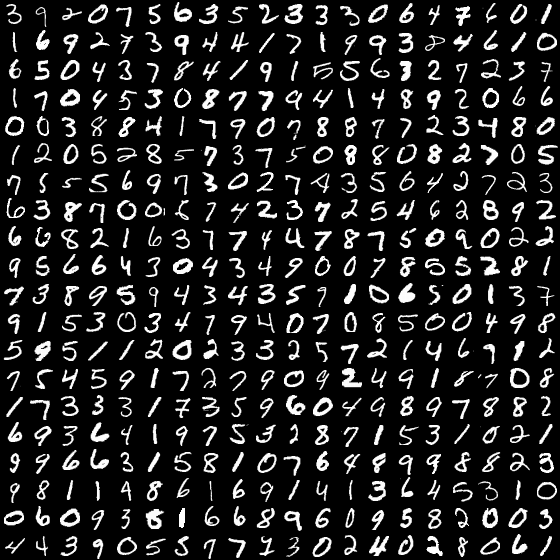 3 9 2 0 7 5 6 3 5 2 3 3 3 0 6 4 7 6 0 1
1 6 9 2 7 3 9 4 4 1 7 1 9 9 3 8 4 6 1 0
6 5 0 4 3 7 8 4 1 9 1 5 5 6 3 2 7 2 3 7
1 7 0 4 5 3 0 8 7 7 9 4 1 4 8 9 2 0 6 6
0 0 3 8 8 4 1 7 9 0 7 8 8 7 7 2 3 4 8 0
1 2 0 5 2 8 5 7 3 7 5 0 8 8 0 8 2 7 0 5
7 5 5 5 6 9 7 3 0 2 7 4 3 5 6 4 2 7 2 3
6 3 8 7 0 0 6 7 4 2 3 7 2 5 4 6 2 8 9 2
6 6 8 2 1 6 3 7 7 4 4 7 8 7 5 0 9 0 2 2
9 5 6 6 4 3 0 4 3 4 9 0 0 7 8 5 5 2 8 1
7 3 8 9 5 9 4 3 4 3 5 9 1 0 6 5 0 1 3 7
9 1 5 3 0 3 4 7 9 4 0 7 0 8 5 0 0 4 9 8
5 9 5 1 1 2 0 2 3 3 2 5 7 2 1 4 6 9 1 2
7 5 4 5 9 1 7 2 7 9 0 9 2 4 9 1 8 7 0 8
1 7 3 3 3 1 7 3 5 9 6 0 4 9 8 9 7 8 8 2
6 9 3 6 4 1 9 7 5 3 2 8 7 1 5 3 1 0 2 1
9 9 6 6 3 1 5 8 1 0 7 6 4 8 9 9 8 8 2 3
9 8 1 1 4 8 6 1 6 9 1 4 1 3 6 4 5 3 1 0
0 6 0 9 3 8 1 6 6 8 9 6 0 9 5 8 2 0 0 3
4 4 3 9 0 5 5 7 7 1 3 0 2 4 0 2 8 0 6 1